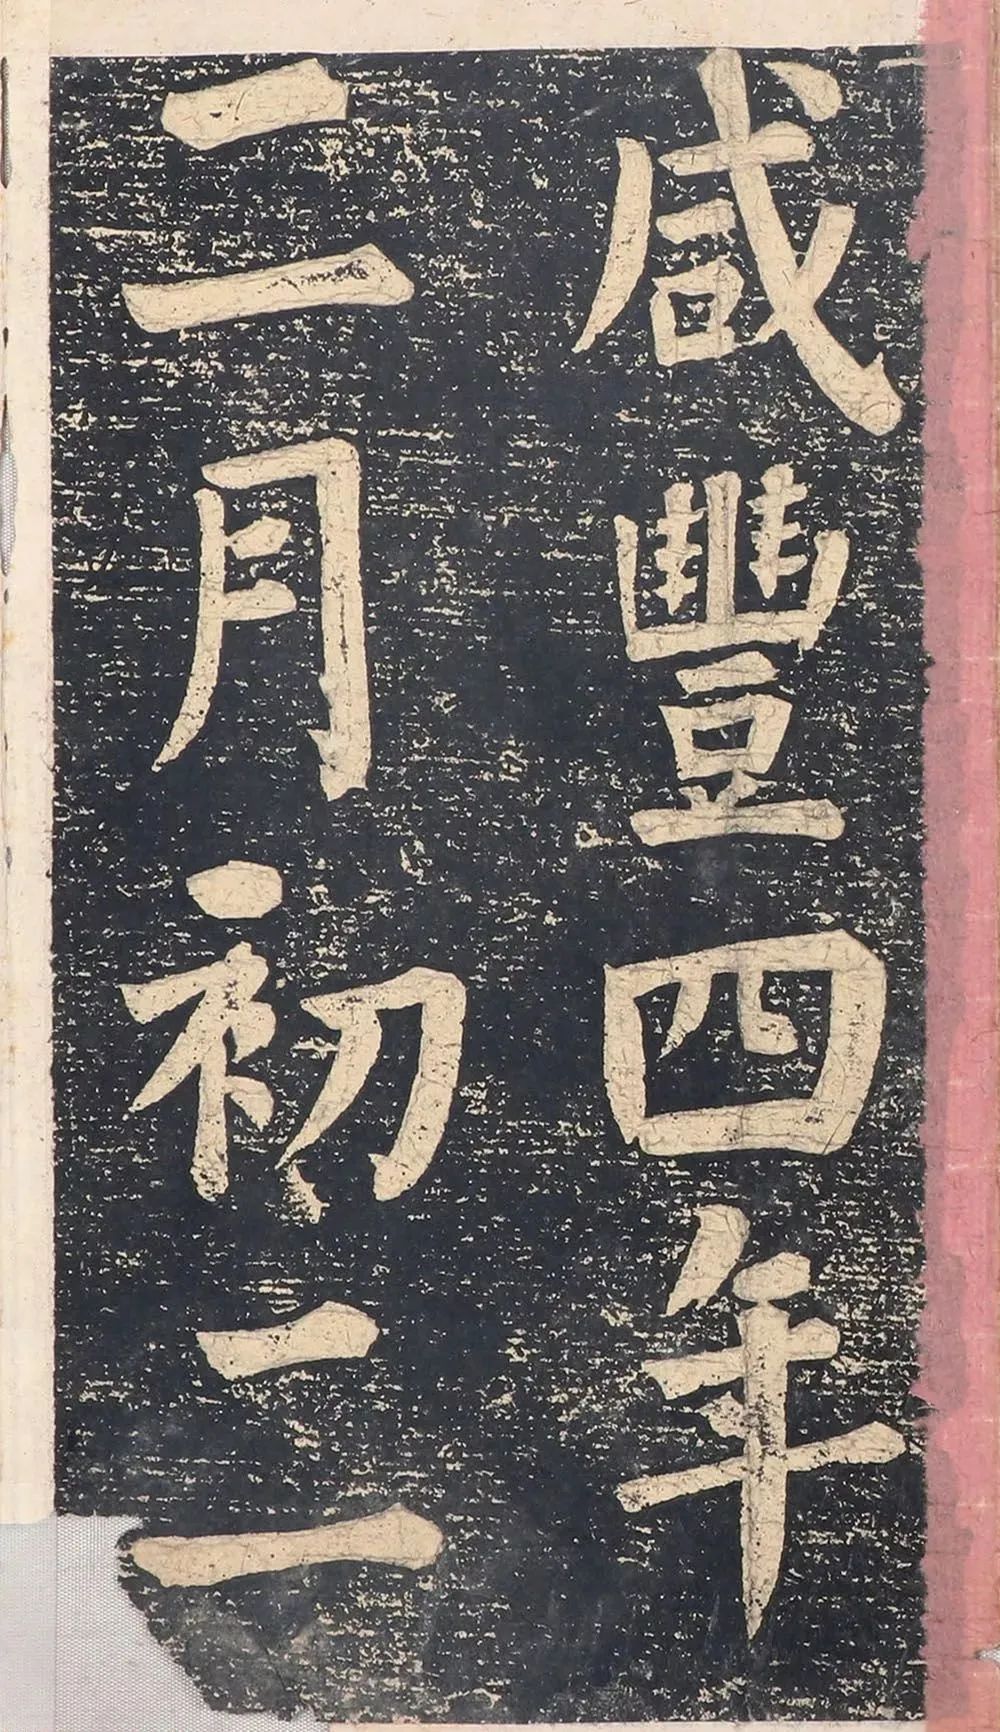 咸豐四年
二月初二